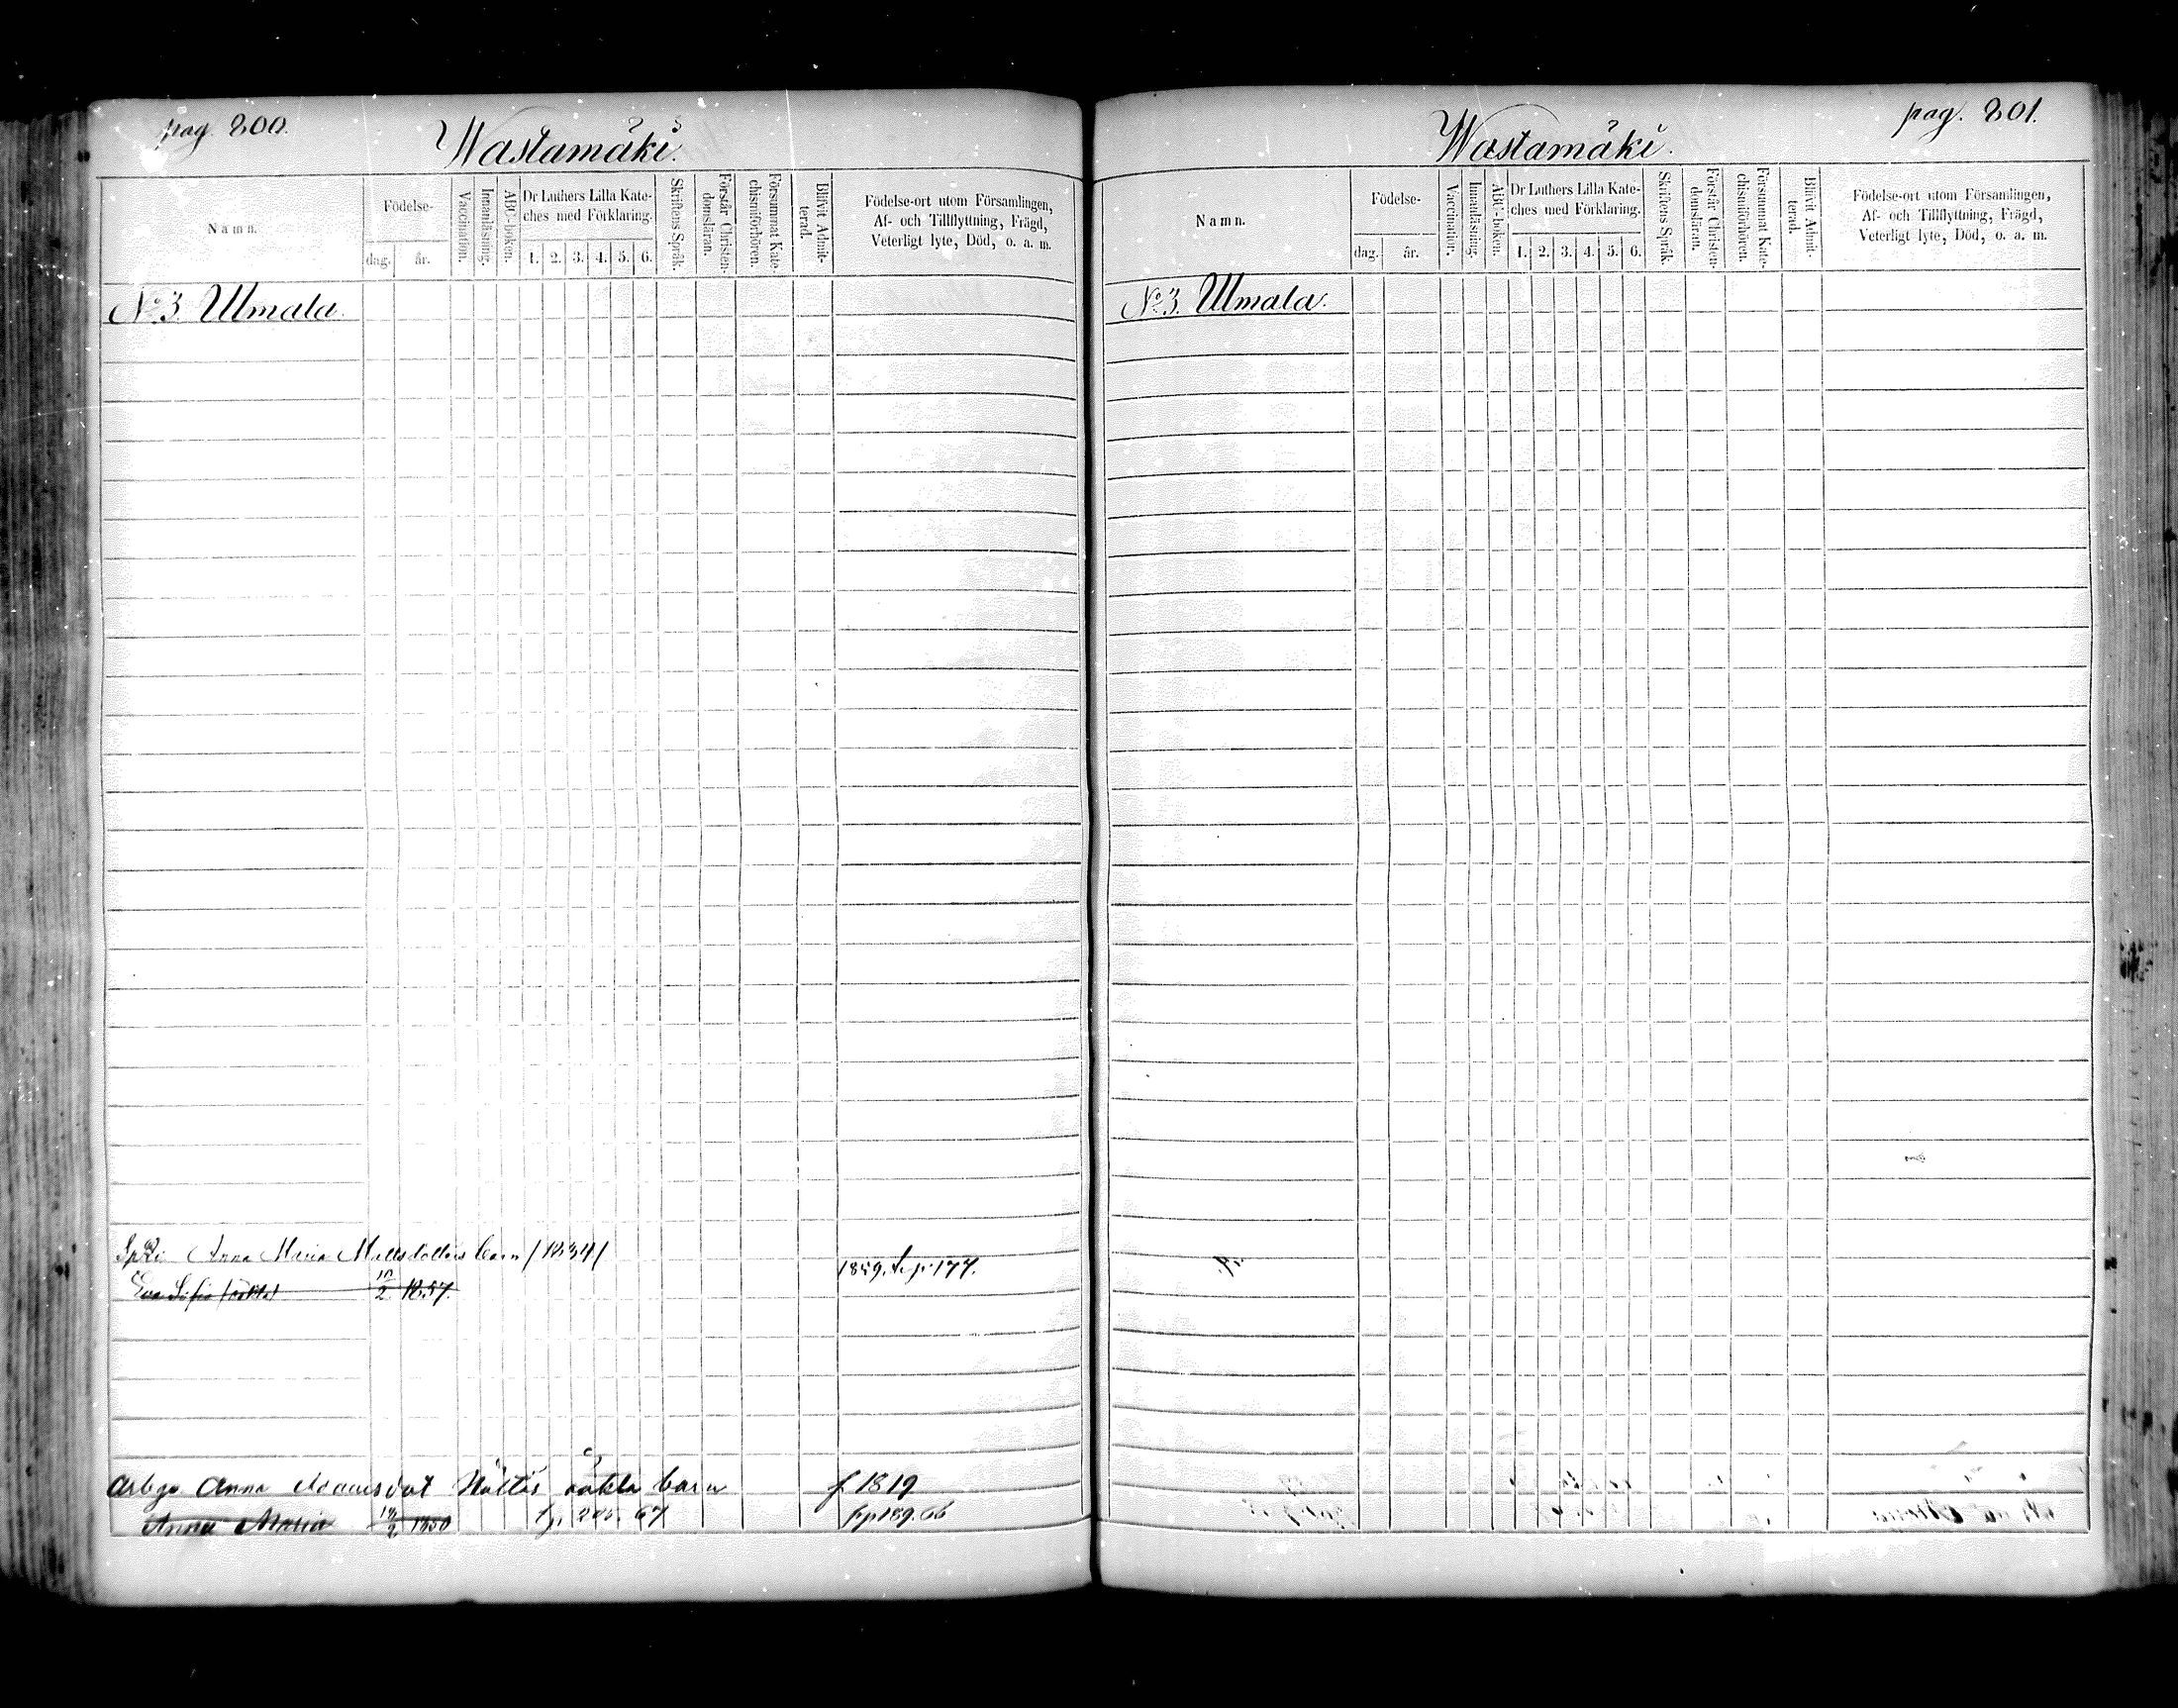 pag. 800.
Wastamäki.
Namn.
Födelse-
dag.
år.
Vaccination.
Innanläsning.
ABC-boken.
Dr Luthers Lilla Kate-
ches med Förklaring.
1. 2. 3. 4. 5. 6.
Skriftens Språk.
Förstår Christen-
domsläran.
Försummat Kate-
chismiförhören.
Blifvit Admit-
terad.
Födelse-ort utom Församlingen,
Af- och Tillflyttning, Frägd,
Veterligt lyte, Död, o. a. m.
No 3. Ulmala.
Anna Maria barn /1834/
1859. 177.
Eva Sofia 10/2 1857.
Anna oäkta barn f 1819
Anna Maria 1850 67 189. 66
pag. 801.
Wastamäki.
Namn.
Födelse-
dag.
år.
Vaccination.
Innanläsning.
ABC-boken.
Dr Luthers Lilla Kate-
ches med Förklaring.
1. 2. 3. 4. 5. 6.
Skriftens Språk.
Förstår Christen-
domsläran.
Försummat Kate-
chismiförhören.
Blifvit Admit-
terad.
Födelse-ort utom Församlingen,
Af- och Tillflyttning, Frägd,
Veterligt lyte, Död, o. a. m.
No 3. Ulmala.